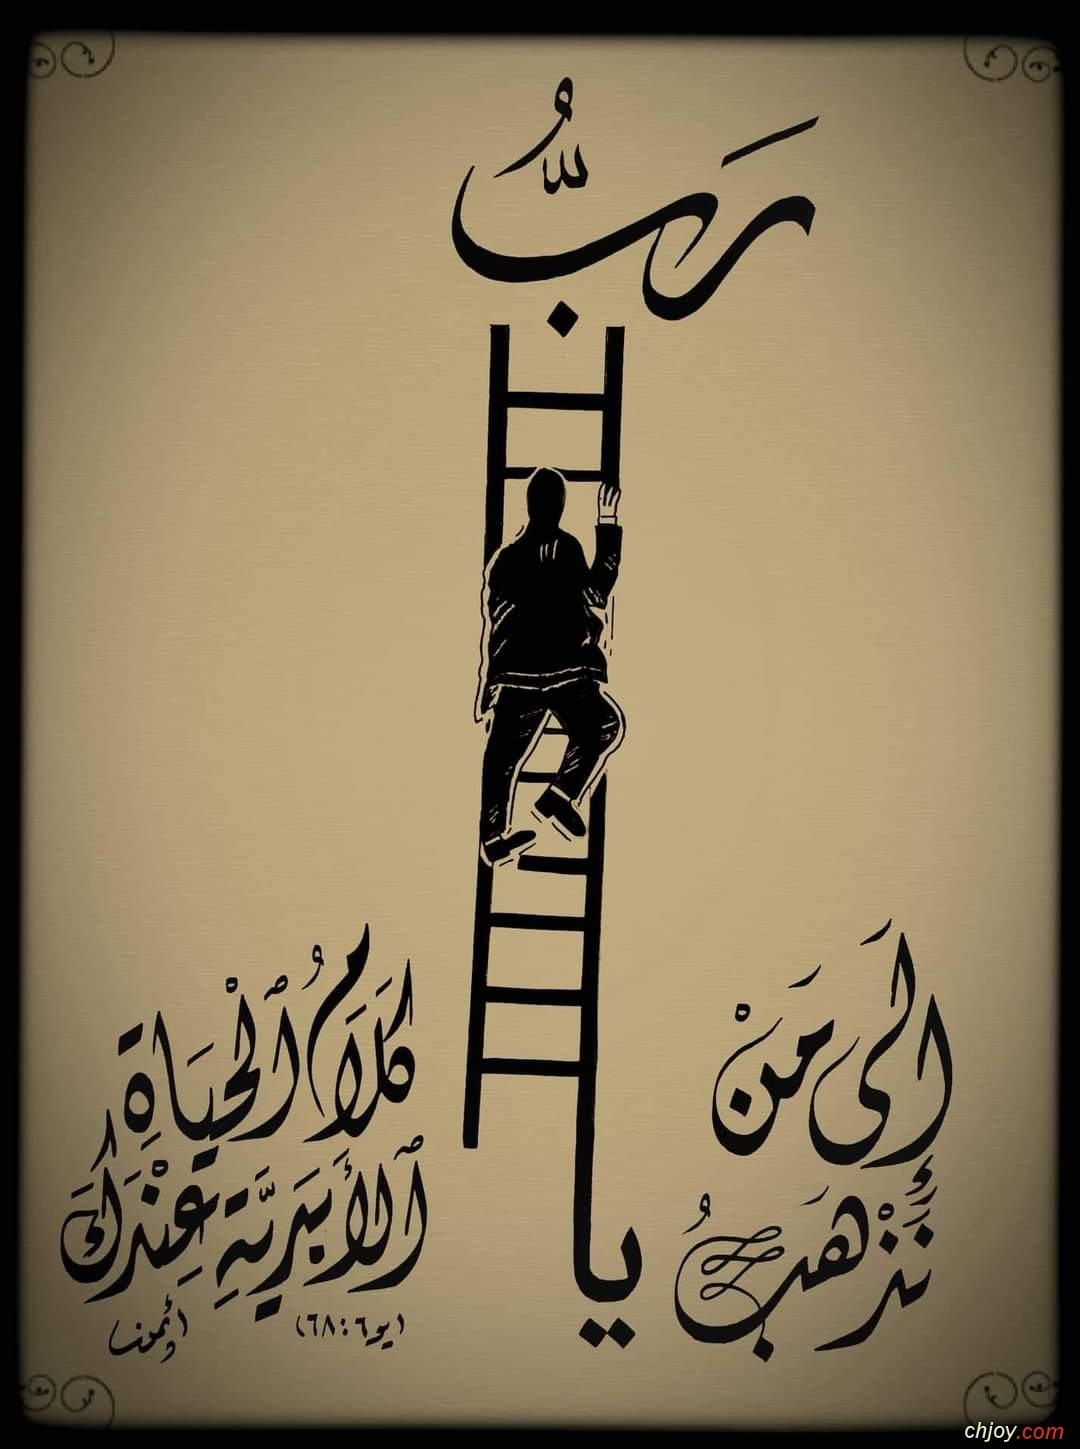 يا
رَبُّ
إِلَى مَنْ
نَذْهَبُ
كَلَامُ ٱلْحَيَاةِ
ٱلْأَبَدِيَّةِ عِنْدَكَ
(يو٦ :٦٨)
chjoy.com